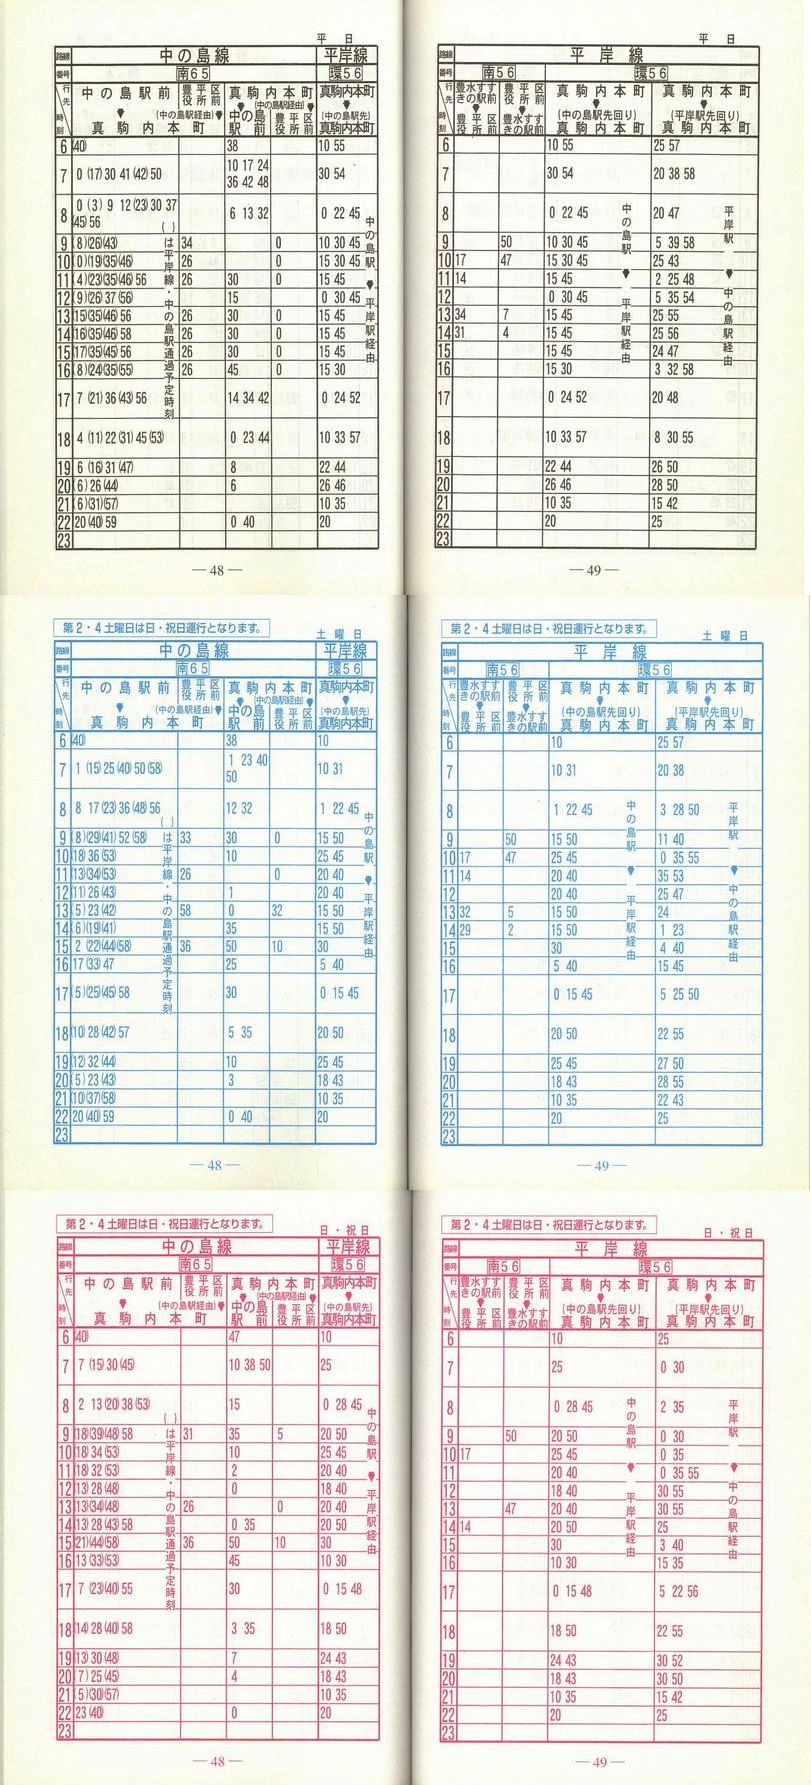 平 日
路線 中の島線 平岸線
番号 南65 環56
行先 中の島駅前 豊平区役所前 真駒内本町 真駒内本町
(中の島駅経由) (中の島駅経由) (中の島駅先)
時刻 真駒内本町 中の島駅前 豊平区役所前 真駒内本町
6 (40) 38 10 55
7 0 (17) 30 41 (42) 50 10 17 24 30 54
36 42 48
8 0 (3) 9 12 (23) 30 37 6 13 32 0 22 45
(45) 56
9 (8) (26) (43) 34 0 10 30 45
10 0 (19) (35) (46) 26 0 15 30 45
11 (4) (23) (35) (46) 56 26 30 0 15 45
12 (9) (26) 37 (56) 15 0 30 45
13 (15) (35) (46) 56 26 30 0 15 45
14 (16) (35) (46) 58 26 30 0 15 45
15 (17) (35) (45) 56 26 30 0 15 45
16 (8) (24) (35) (55) 26 45 0 15 30
17 7 (21) 36 (43) 56 14 34 42 0 24 52
18 4 (11) 22 (31) 45 (53) 0 23 44 10 33 57
19 6 (16) 31 (47) 8 22 44
20 (6) 26 (44) 6 26 46
21 (6) (31) (57) 10 35
22 20 (40) 59 0 40 20
23
( )は平岸線・中の島駅通過予定時刻
中の島駅 平岸駅経由
— 48 —
平 日
路線 平岸線
番号 南56 環56
行先 豊水すすきの駅前 豊平区役所前 真駒内本町 真駒内本町
(中の島駅先回り) (平岸駅先回り)
時刻 豊平区役所前 豊水すすきの駅前 真駒内本町 真駒内本町
6 10 55 25 57
7 30 54 20 38 58
8 0 22 45 20 47
9 50 10 30 45 5 39 58
10 17 47 15 30 45 25 43
11 14 15 45 2 25 48
12 0 30 45 5 35 54
13 34 7 15 45 25 55
14 31 4 15 45 25 56
15 15 45 24 47
16 15 30 3 32 58
17 0 24 52 20 48
18 10 33 57 8 30 55
19 22 44 26 50
20 26 46 28 50
21 10 35 15 42
22 20 25
23
中の島駅 平岸駅経由
平岸駅 中の島駅経由
— 49 —
第2・4土曜日は日・祝日運行となります。
土曜日
路線 中の島線 平岸線
番号 南65 環56
行先 中の島駅前 豊平区役所前 真駒内本町 真駒内本町
(中の島駅経由) (中の島駅経由) (中の島駅先)
時刻 真駒内本町 中の島駅前 豊平区役所前 真駒内本町
6 (40) 38 10
7 1 (15) 25 (40) 50 (58) 1 23 40 10 31
50
8 8 17 (23) 36 (48) 56 12 32 1 22 45
9 (8) (29) (41) 52 (58) 33 30 0 15 50
10 (18) 36 (53) 10 25 45
11 (13) (34) (53) 26 0 20 40
12 (11) 26 (43) 1 20 40
13 (5) 23 (42) 58 0 32 15 50
14 (6) (19) (41) 35 15 50
15 2 (22) (44) (58) 36 50 10 30
16 17 (33) 47 25 5 40
17 (5) (25) (45) 58 30 0 15 45
18 (10) 28 (42) 57 5 35 20 50
19 (12) 32 (44) 10 25 45
20 (5) 23 (43) 3 18 43
21 (10) (37) (58) 10 35
22 20 (40) 59 0 40 20
23
( )は平岸線・中の島駅通過予定時刻
中の島駅 平岸駅経由
— 48 —
第2・4土曜日は日・祝日運行となります。
土曜日
路線 平岸線
番号 南56 環56
行先 豊水すすきの駅前 豊平区役所前 真駒内本町 真駒内本町
(中の島駅先回り) (平岸駅先回り)
時刻 豊平区役所前 豊水すすきの駅前 真駒内本町 真駒内本町
6 10 25 57
7 10 31 20 38
8 1 22 45 3 28 50
9 50 15 50 11 40
10 17 47 25 45 0 35 55
11 14 20 40 35 53
12 20 40 25 47
13 32 5 15 50 24
14 29 2 15 50 1 23
15 30 4 40
16 5 40 15 45
17 0 15 45 5 25 50
18 20 50 22 55
19 25 45 27 50
20 18 43 28 55
21 10 35 22 43
22 20 25
23
中の島駅 平岸駅経由
平岸駅 中の島駅経由
— 49 —
第2・4土曜日は日・祝日運行となります。
日・祝日
路線 中の島線 平岸線
番号 南65 環56
行先 中の島駅前 豊平区役所前 真駒内本町 真駒内本町
(中の島駅経由) (中の島駅経由) (中の島駅先)
時刻 真駒内本町 中の島駅前 豊平区役所前 真駒内本町
6 (40) 47 10
7 7 (15) 30 (45) 10 38 50 25
8 2 13 (20) 38 (53) 15 0 28 45
9 (18) (39) (48) 58 31 35 5 20 50
10 (18) 34 (53) 10 25 45
11 (18) 32 (53) 2 20 40
12 (13) 28 (48) 0 18 40
13 (13) (34) (48) 26 0 20 40
14 (13) 28 (43) 58 0 35 20 50
15 (21) (44) (58) 36 50 10 30
16 13 (33) (53) 45 10 30
17 7 (23) (40) 55 30 0 15 48
18 (14) 28 (40) 58 3 35 18 50
19 (13) 30 (48) 7 24 43
20 (7) 25 (45) 4 18 43
21 (5) (30) (57) 10 35
22 23 (40) 0 20
23
( )は平岸線・中の島駅通過予定時刻
中の島駅 平岸駅経由
— 48 —
第2・4土曜日は日・祝日運行となります。
日・祝日
路線 平岸線
番号 南56 環56
行先 豊水すすきの駅前 豊平区役所前 真駒内本町 真駒内本町
(中の島駅先回り) (平岸駅先回り)
時刻 豊平区役所前 豊水すすきの駅前 真駒内本町 真駒内本町
6 10 25
7 25 0 30
8 0 28 45 2 35
9 50 20 50 0 30
10 17 25 45 0 35
11 20 40 0 35 55
12 18 40 30 55
13 47 20 40 30 55
14 14 20 50 25
15 30 3 40
16 10 30 15 35
17 0 15 48 5 22 56
18 18 50 22 55
19 24 43 30 52
20 18 43 30 50
21 10 35 15 42
22 20 25
23
中の島駅 平岸駅経由
平岸駅 中の島駅経由
— 49 —